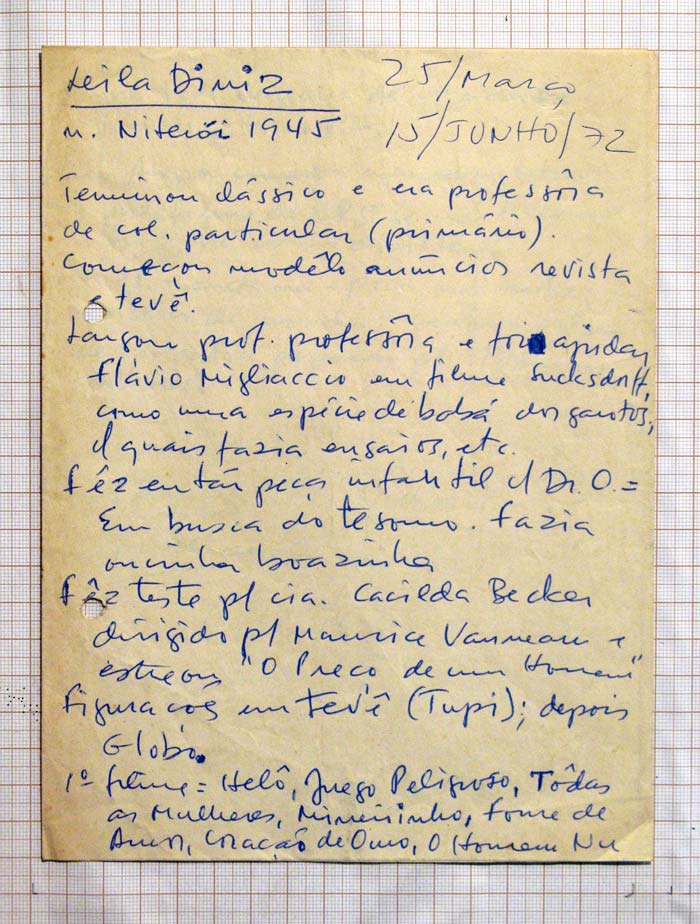 Leila Diniz
25/Março
n. Niterói 1945
15/JUNHO/72
Terminou clássico e era professôra
de col. particular (primário).
começou modêlo anúncios revista
e tevê.
Largou prof. professôra e foi ajudar
Flávio Migliaccio em filme Sucksdorff,
como uma espécie de babá dos garotos,
c/ quais fazia ensaios, etc.
Fêz então peça infantil c/ Dr. O. =
Em busca do tesouro. Fazia
oncinha boazinha
Fêz teste p/ cia. Cacilda Becker
dirigido p/ Maurice Vanneau e
estreou "O Preço de um Homem"
Figurações em tevê (Tupi); depois
Globo.
1º filme = Helô, Juego Peligroso, Tôdas
as Mulheres, Mineirinho, Fome de
Amor, Coração de Ouro, O Homem Nu